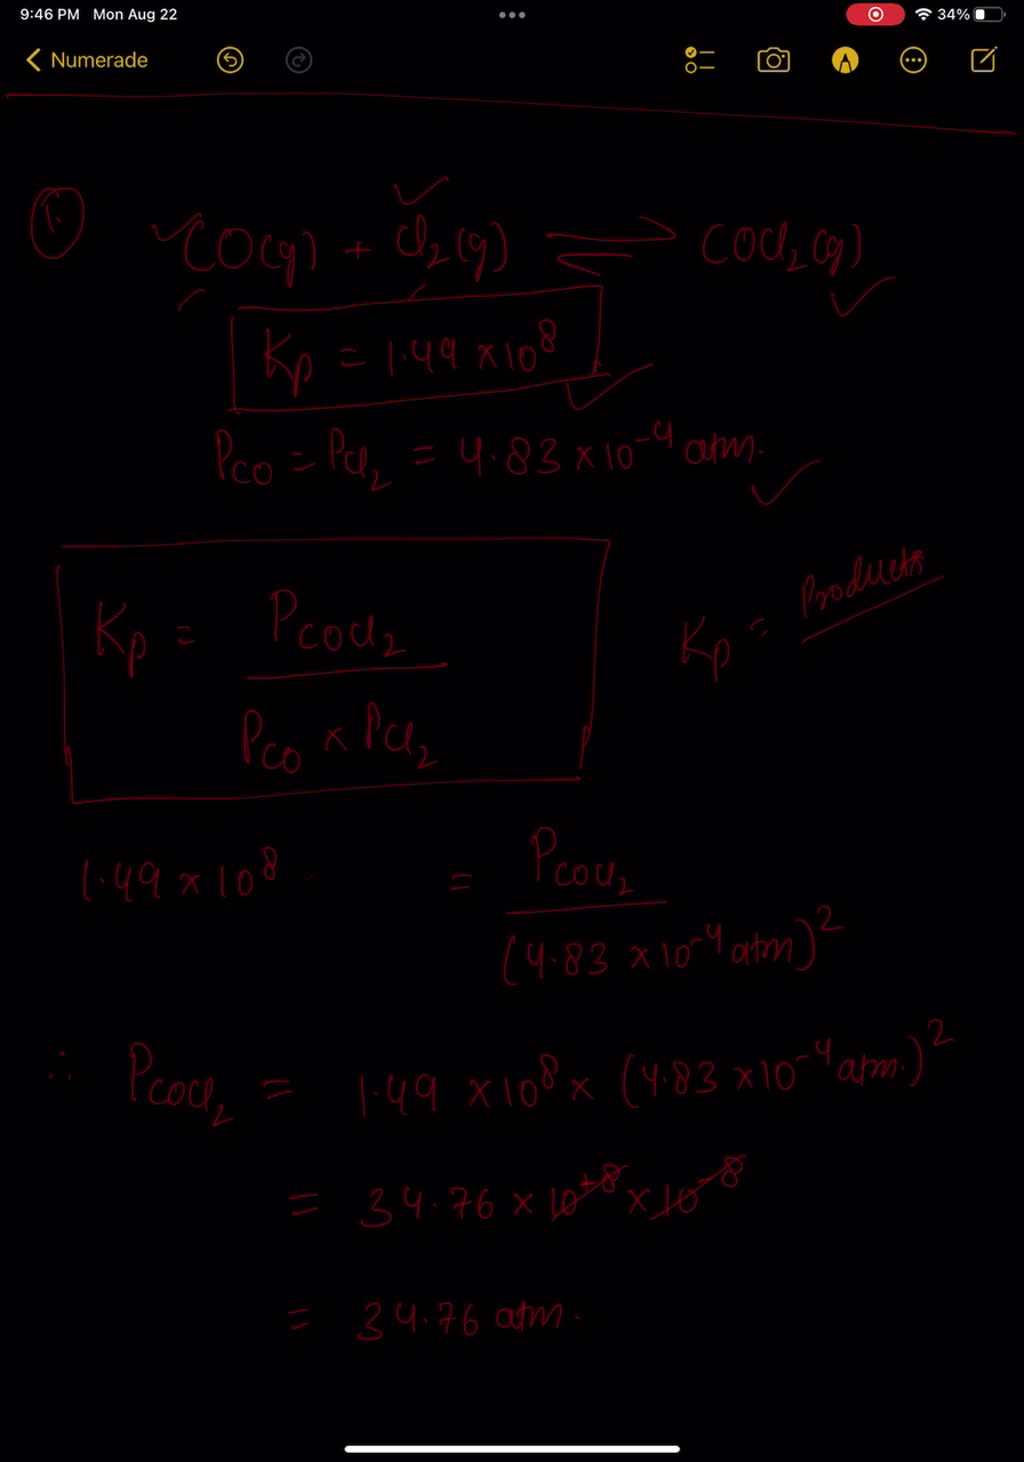 9:46 PM Mon Aug 22 34%
Numerade
1.
CO(g) + Cl₂(g) ⇌ COCl₂(g)
Kp = 1.49 × 10⁸
P_CO = P_Cl₂ = 4.83 × 10⁻⁴ atm.
Kp = P_COCl₂ / P_CO × P_Cl₂
Kp = Products
1.49 × 10⁸ = P_COCl₂ / (4.83 × 10⁻⁴ atm)²
∴ P_COCl₂ = 1.49 × 10⁸ × (4.83 × 10⁻⁴ atm.)²
= 34.76 × 10⁺⁸ × 10⁻⁸
= 34.76 atm.